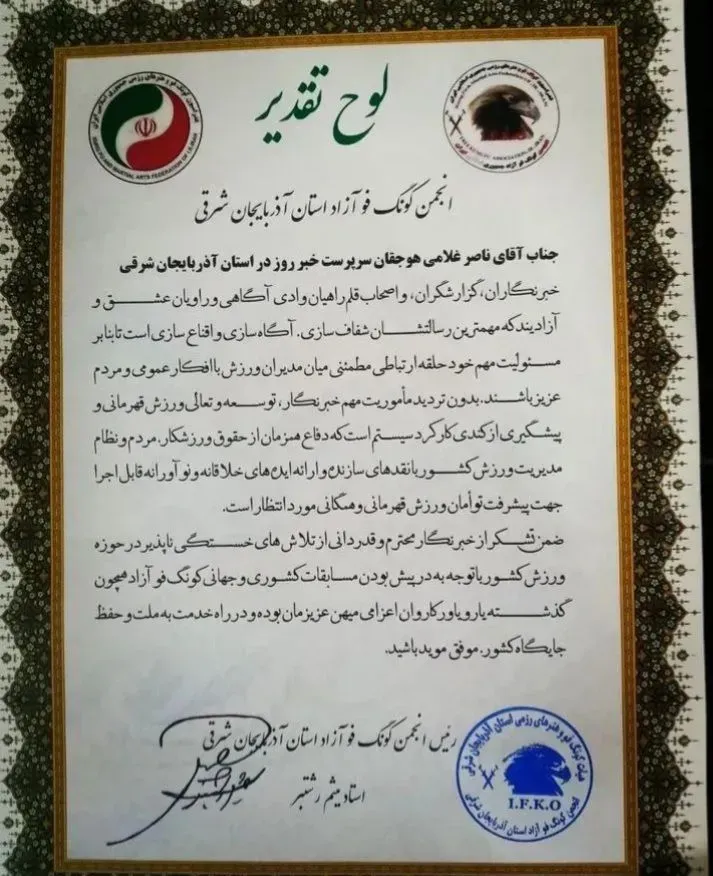 لوح تقدیر
انجمن کونگ فو آزاد استان آذربایجان شرقی
جناب آقای ناصر غلامی هوجقان سرپرست خبر روز در استان آذربایجان شرقی
خبرنگاران، گزارشگران، و اصحاب قلم راهیان وادی آگاهی و راویان عشق و
آزادیند که مهمترین رسالتشان شفاف سازی. آگاه سازی و اقناع سازی است تا بنا بر
مسئولیت مهم خود حلقه ارتباطی مطمئنی میان مدیران ورزش با افکار عمومی و مردم
عزیز باشند. بدون تردید مأموریت مهم خبرنگار، توسعه و تعالی ورزش قهرمانی و
پیشگیری از کندی کارکرد سیستم است که دفاع همزمان از حقوق ورزشکار. مردم و نظام
مدیریت ورزش کشور با نقدهای سازنده و ارائه ایده های خلاقانه و نوآورانه قابل اجرا
جهت پیشرفت توأمان ورزش قهرمانی و همگانی مورد انتظار است.
ضمن تشکر از خبرنگار محترم و قدردانی از تلاش های خستگی ناپذیر در حوزه
ورزش کشور با توجه به در پیش بودن مسابقات کشوری و جهانی کونگ فو آزاد همچون
گذشته یار و یاور کاروان اعزامی میهن عزیزمان بوده و در راه خدمت به ملت و حفظ
جایگاه کشور. موفق موید باشید.
رئیس انجمن کونگ فو آزاد استان آذربایجان شرقی
استاد میثم رشتبر
هیئت کونگ فو و هنرهای رزمی استان آذربایجان شرقی
I.F.K.O
انجمن کونگ فو آزاد استان آذربایجان شرقی